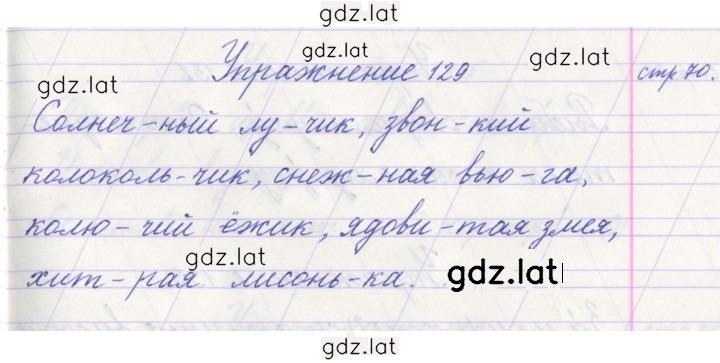 gdz.lat
gdz.lat
gdz.lat
gdz.lat
Упражнение 129 стр 70.
Солнеч-ный лу-чик, звон-кий
колоколь-чик, снеж-ная вью-га,
колю-чий ёжик, ядови-тая змея,
хит-рая лисонь-ка.
gdz.lat
gdz.lat